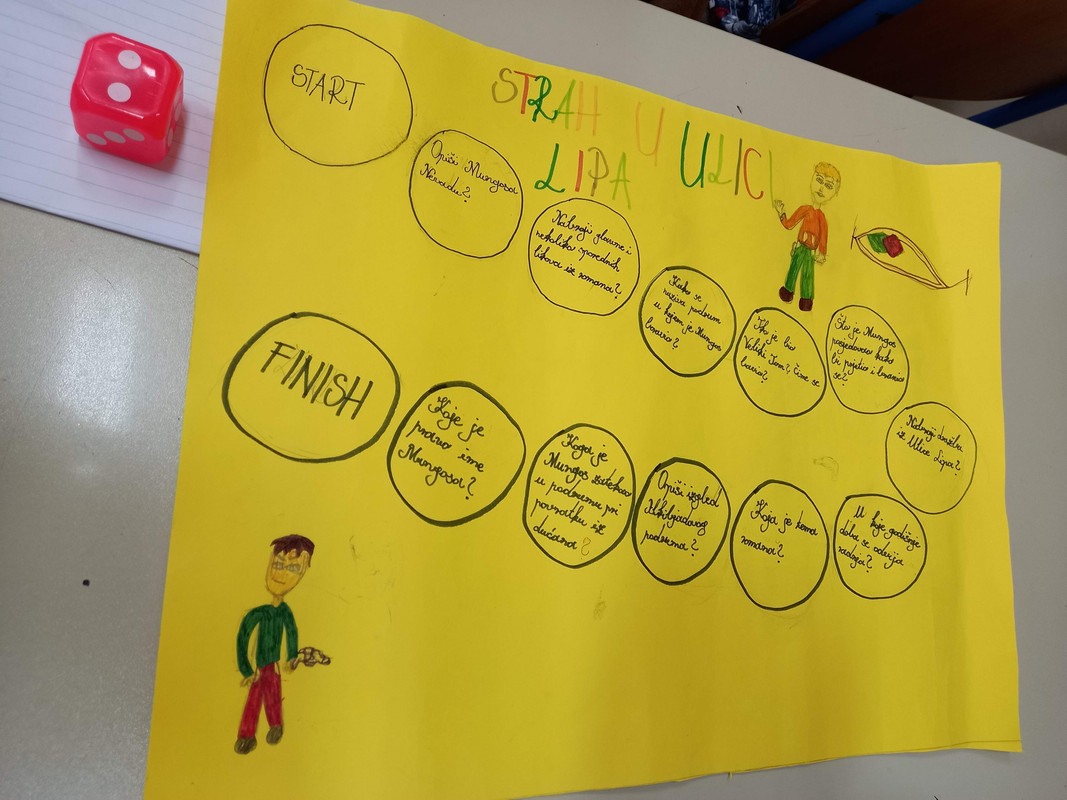 START
STRAH U ULICI
LIPA
Opiši Mungosa
Nevadu?
Nabroji glavne i
nekoliko sporednih
likova iz romana?
Kako se
naziva podrum
u kojem je Mungos
boravio?
Tko je bio
Veliki Jom?, čime se
bavio?
Što je Mungos
posjedovao kako
bi
i
se?
Nabroji
iz Ulice Lipa?
U koje godišnje
doba se odvija
radnja?
Koja je tema
romana?
Opiši izgled
Alkibijadovog
podruma?
Koga je
Mungos zatekao
u podrumu pri
povratku iz
dućana?
Koje je
pravo ime
Mungosa?
FINISH